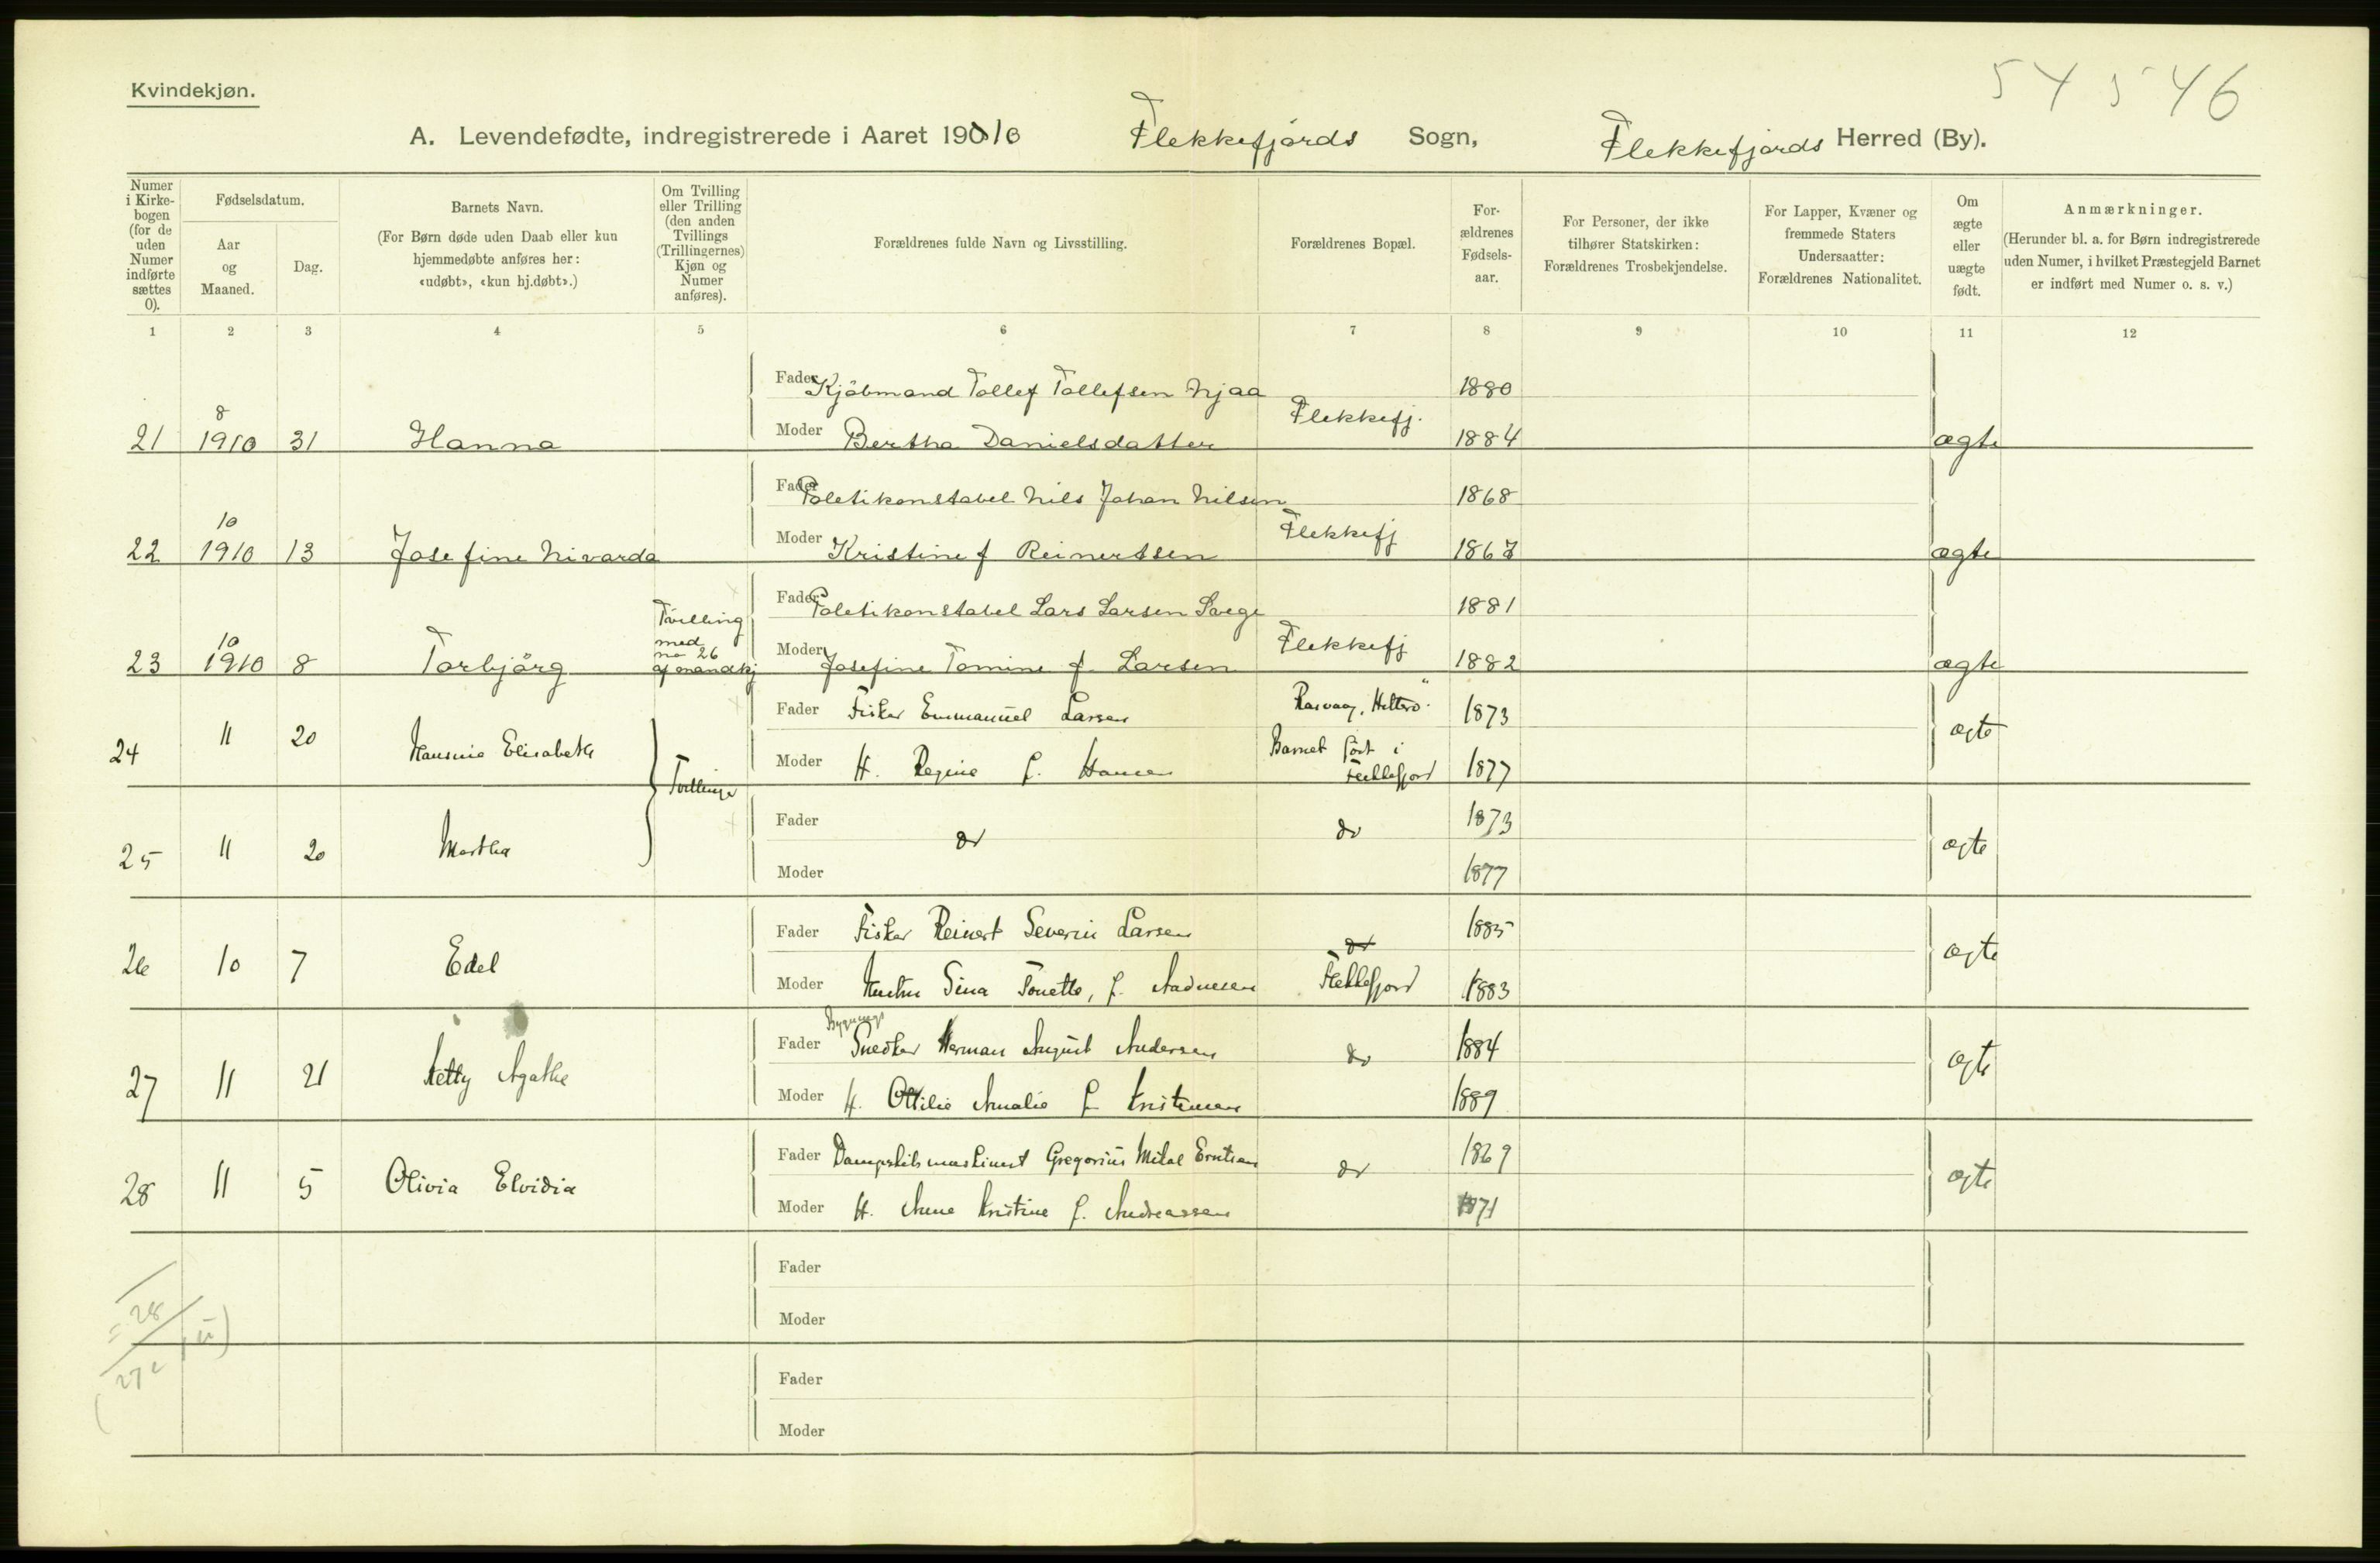 54 546
Kvindekjøn.
A. Levendefødte, indregistrerede i Aaret 1910 Flekkefjords Sogn, Flekkefjords Herred (By).
Numer i Kirkebogen (for de uden Numer indførte sættes 0).
Fødselsdatum.
Aar og Maaned.
Dag.
Barnets Navn.
(For Børn døde uden Daab eller kun hjemmedøbte anføres her: «udøbt», «kun hj.døbt».)
Om Tvilling eller Trilling (den anden Tvillings (Trillingernes) Kjøn og Numer anføres).
Forældrenes fulde Navn og Livsstilling.
Forældrenes Bopæl.
Forældrenes Fødselsaar.
For Personer, der ikke tilhører Statskirken: Forældrenes Trosbekjendelse.
For Lapper, Kvæner og fremmede Staters Undersaatter: Forældrenes Nationalitet.
Om ægte eller uægte født.
Anmærkninger.
(Herunder bl. a. for Børn indregistrerede uden Numer, i hvilket Præstegjeld Barnet er indført med Numer o. s. v.)
1 2 3 4 5 6 7 8 9 10 11 12
Fader Kjøbmand Tollef Tollefsen Njaa 1880
21 8 1910 31 Hanna Moder Bertha Danielsdatter Flekkefj. 1884 ægte
Fader Poletikonstabel Nils Johan Nilsen 1868
22 10 1910 13 Josefine Nivarda Moder Kristine f Reinertsen Flekkefj ægte
Fader Poletikonstabel Lars Larsen 1881
23 10 1910 8 Torbjørg Tvilling med no 26 af mandkj Moder Josefine Tomine f. Larsen Flekkefj 1882 ægte
Fader Fisker Emmanuel Larsen Rasvaag, Hitterø. 1873
24 11 20 Hansine Elisabeth Tvillinger Moder H. Regine f. Hansen Barnet født i Flekkefjord 1877 ægte
Fader do do 1873
25 11 20 Martha Moder 1877 ægte
Fader Fisker Reinert Severin Larsen do 1885
26 10 7 Edel Moder Hustru Sina Tonette, f. Aadnesen Flekkefjord 1883 ægte
Fader Bygnings Snedker Herman August Andersen do 1884
27 11 21 Agathe Moder H. Ottilie Amalie f. Kristensen 1889 ægte
Fader Dampskibsmaskinist Gregorius Mikal do 1869
28 11 5 Olivia Elvidia Moder H. Anne Kristine f. Andreassen 1871 ægte
Fader
Moder
= 28
Fader
Moder